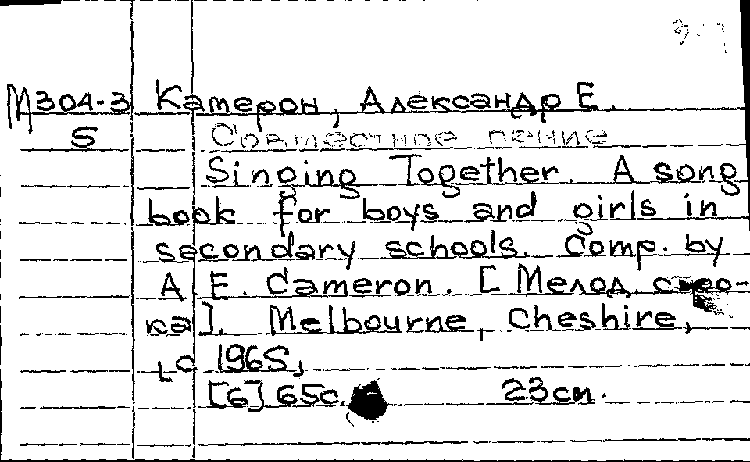 М304-3 Камерон, Александр Е.
5 Совместное пение
Singing Together. A song
book for boys and girls in
secondary schools. Comp. by
A. E. Cameron. [Мелод. стро-
ка]. Melbourne, Cheshire,
c 1965,
[6] 65с. 23см.